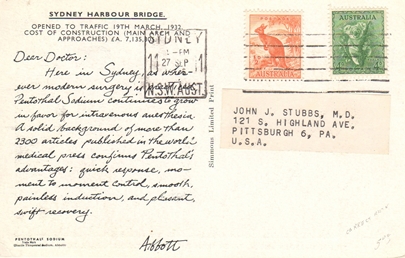 SYDNEY HARBOUR BRIDGE.
OPENED TO TRAFFIC 19TH MARCH, 1932.
COST OF CONSTRUCTION (MAIN ARCH AND
APPROACHES) £A. 7,135,
Dear Doctor:
Here in Sydney, as wher-
ever modern surgery is
Pentothal Sodium continues to grow
in favor for intravenous anesthesia.
A solid background of more than
2300 articles published in the world's
medical press confirms Pentothal's
advantages: quick response, mo-
ment to moment control, smooth,
painless induction, and pleasant,
swift recovery.
Abbott
PENTOTHAL SODIUM
SYDNEY
1 - PM
27 SEP
N.S.W. AUST.
Simmons Limited Print
AUSTRALIA
AUSTRALIA
JOHN J. STUBBS, M.D.
121 S. HIGHLAND AVE.
PITTSBURGH 6, PA.
U.S.A.